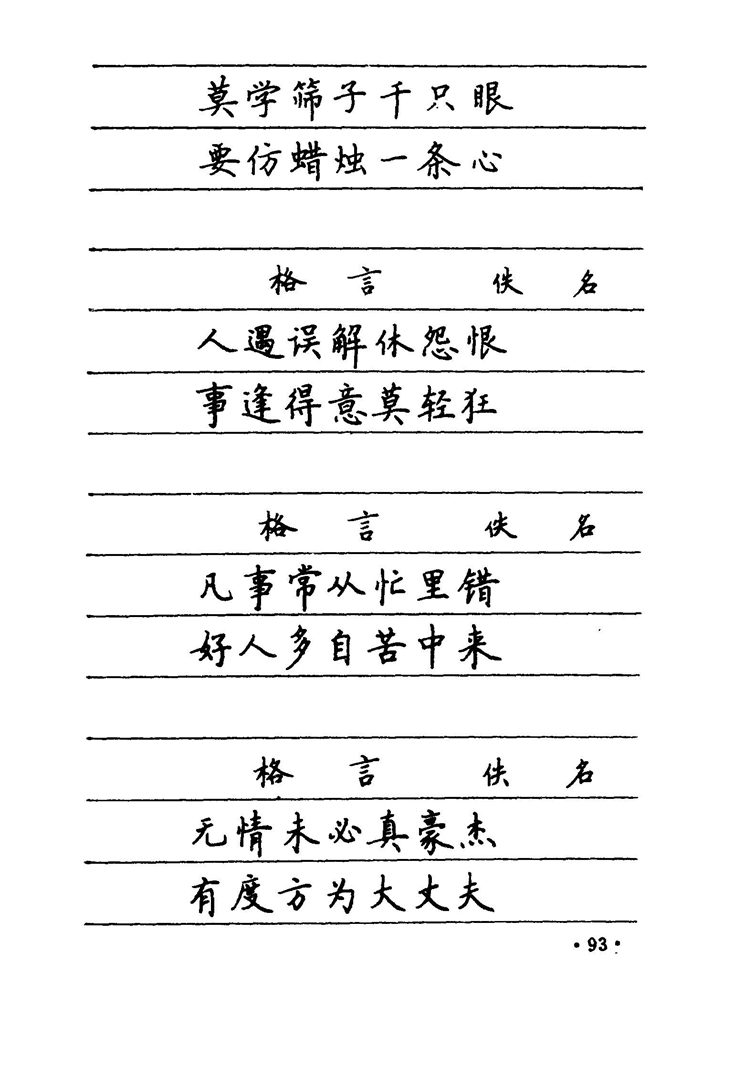 莫学筛子千只眼
要仿蜡烛一条心
格言 佚名
人遇误解休怨恨
事逢得意莫轻狂
格言 佚名
凡事常从忙里错
好人多自苦中来
格言 佚名
无情未必真豪杰
有度方为大丈夫
·93·